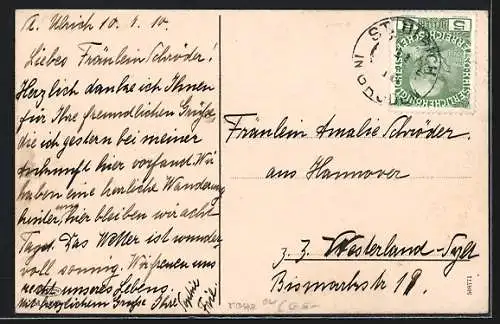 St. Ulrich 10. 8. 10.
Liebes Fräulein Schröder!
Herzlich danke ich Ihnen
für Ihre freundlichen Grüße,
die ich gestern bei meiner
Ankunft hier vorfand. Wir
haben eine herrliche Wanderung
hinter uns, hier bleiben wir acht
Tage. Das Wetter ist wunder
voll sonnig. Wir freuen uns
recht unseres Lebens.
Mit herzlichem Gruße Ihre
ST. ULRICH
5
Fräulein Amalie Schröder
aus Hannover
z. Z. Westerland-Sylt
Bismarckstr 19.